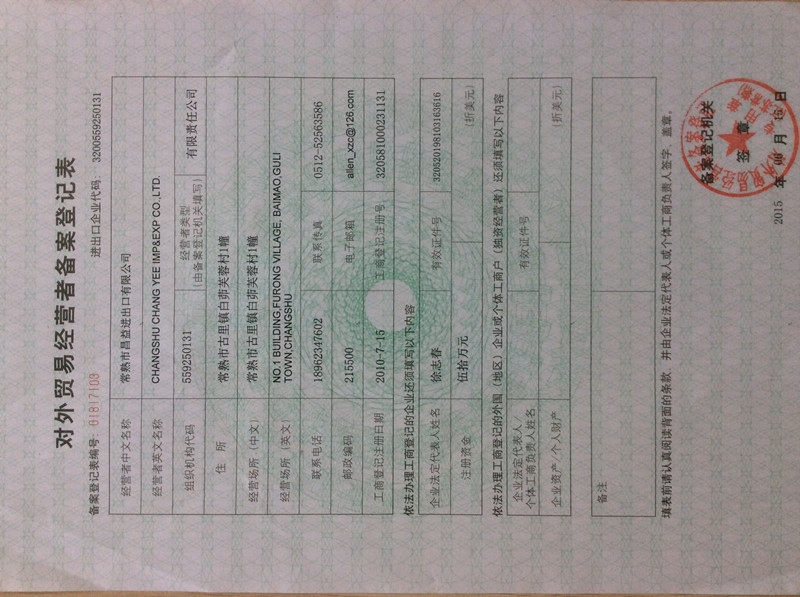 对外贸易经营者备案登记表
备案登记表编号：01817103 进出口企业代码：3200559250131
经营者中文名称 常熟市昌益进出口有限公司
经营者英文名称 CHANGSHU CHANG YEE IMP&EXP CO.,LTD.
组织机构代码 559250131 经营者类型 有限责任公司
(由备案登记机关填写)
住 所 常熟市古里镇白茆芙蓉村1幢
经营场所（中文） 常熟市古里镇白茆芙蓉村1幢
经营场所（英文） NO.1 BUILDING,FURONG VILLAGE, BAIMAO,GULI
TOWN,CHANGSHU
联系电话 18962347602 联系传真 0512-52563586
邮政编码 215500 电子邮箱 allen_xzc@126.com
工商登记注册日期 2010-7-15 工商登记注册号 320581000231131
依法办理工商登记的企业还须填写以下内容
企业法定代表人姓名 徐志春 有效证件号 320520198103163616
注册资金 伍拾万元 (折美元)
依法办理工商登记的外国（地区）企业或个体工商户（独资经营者）还须填写以下内容
企业法定代表人
个体工商负责人姓名 有效证件号
企业资产/个人财产 (折美元)
备注
填表前请认真阅读背面的条款，并由企业法定代表人或个体工商负责人签字、盖章。
备案登记机关
签 章
2015 年 月 日